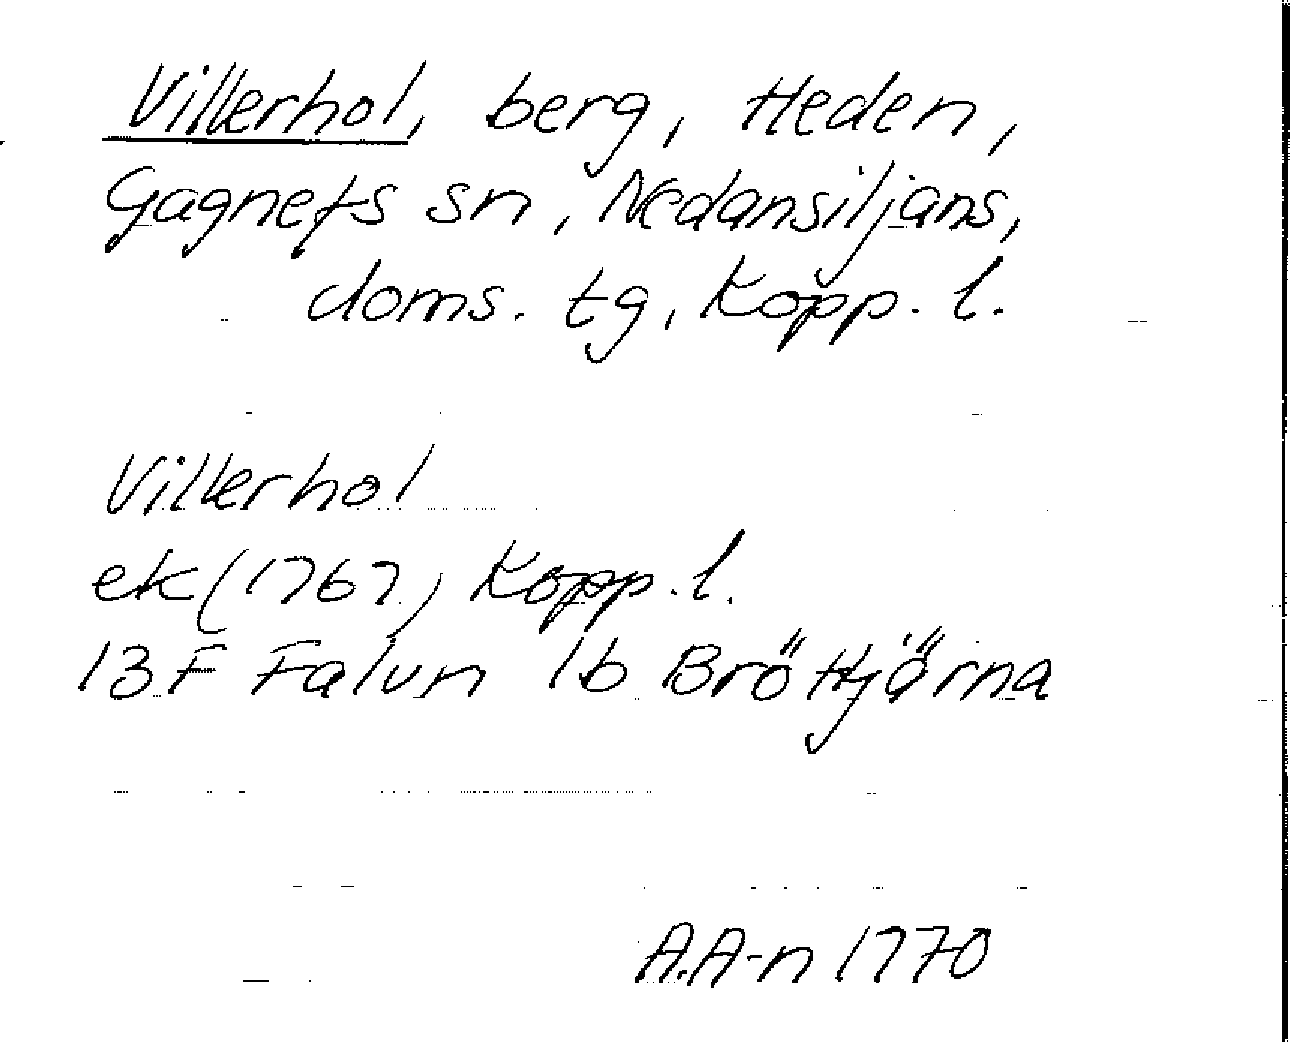 Villerhol, berg, Heden,
Gagnefs sn, Nedansiljans,
doms. tg, Kopp. l.
Villerhol
ek (1767) Kopp. l.
13F Falun 1b Bröttjärna
A.A-n 1770